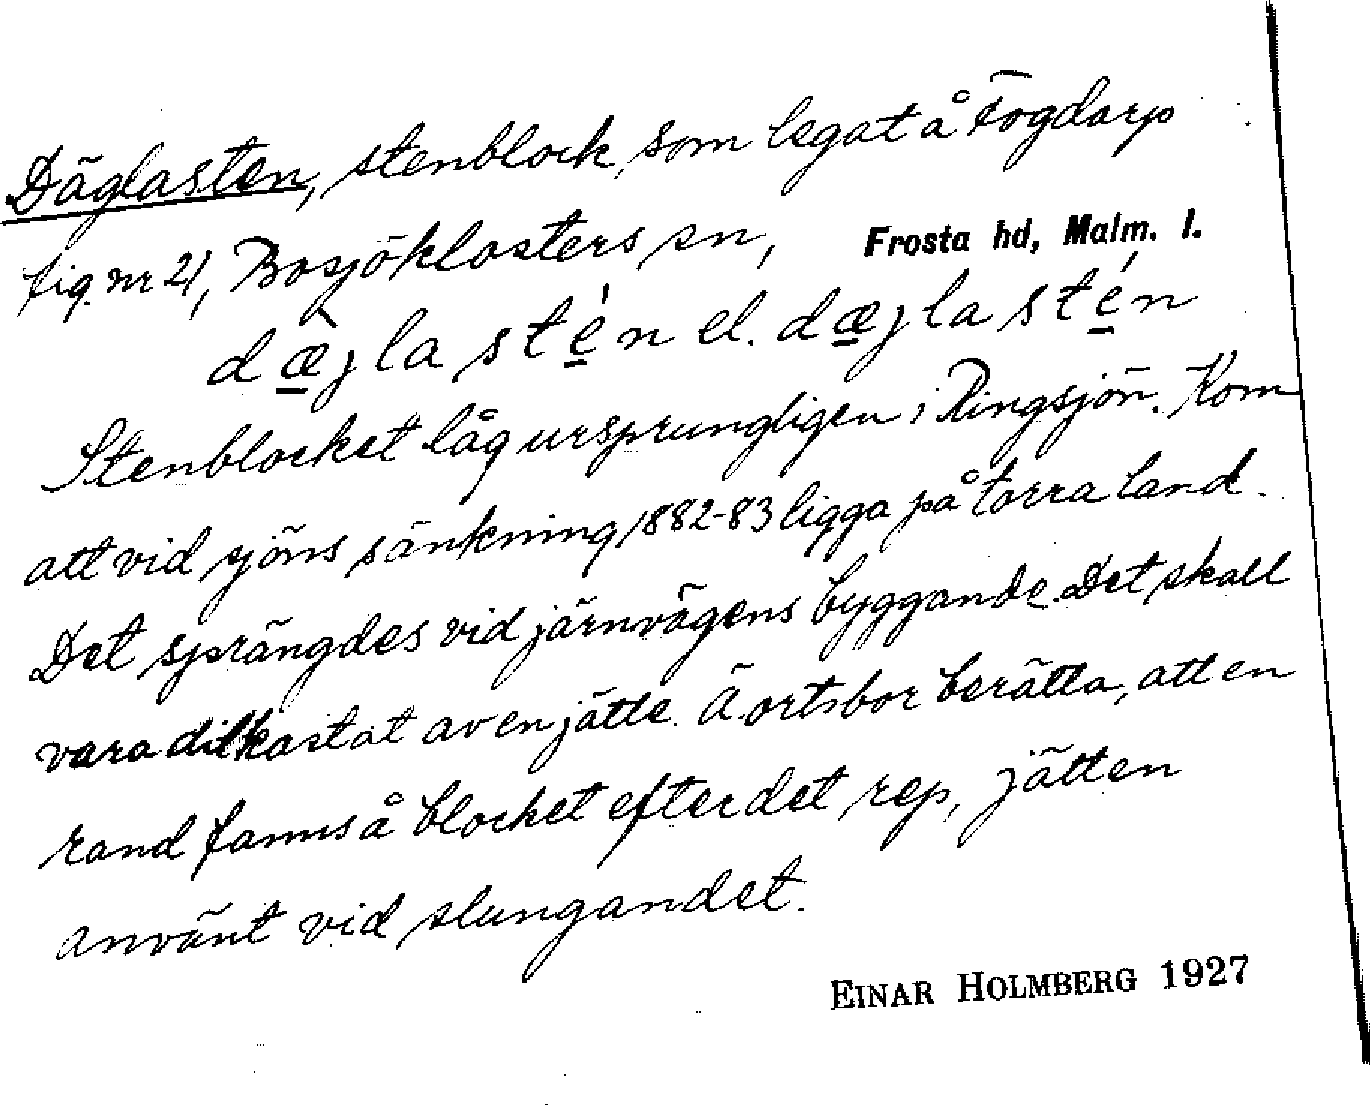 Däglasten, stenblock, som legat å Fogdarp
fig. nr 21, Bosjöklosters sn, Frosta hd, Malm. l.
dæ̀jlastén el. dæjlastén
Stenblocket låg ursprungligen i Ringsjön. Kom
att vid sjöns sänkning 1882-83 ligga på torra land.
Det sprängdes vid järnvägens byggande. Det skall
vara ditkastat av en jätte. Ä. ortsbor berätta, att en
rand fanns å blocket efter det rep, jätten
använt vid slungandet.
EINAR HOLMBERG 1927